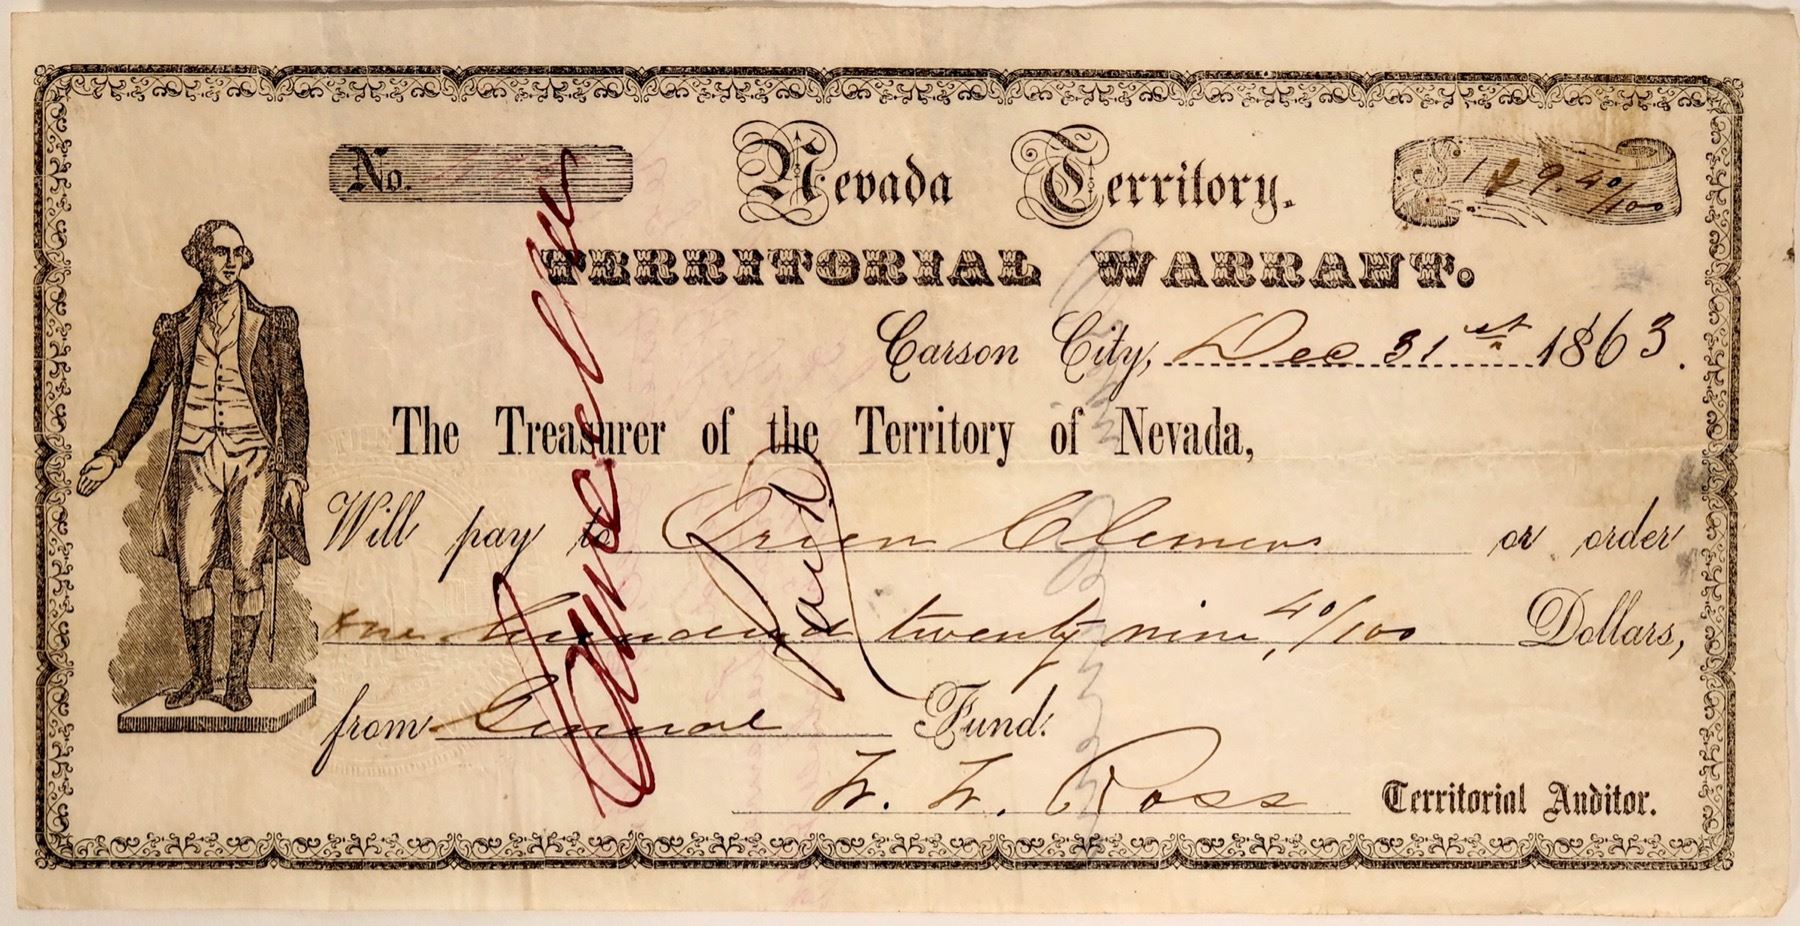 No.
Nevada Territory.
$129.40/100
TERRITORIAL WARRANT.
Carson City, Dec 31st 1863.
The Treasurer of the Territory of Nevada,
Will pay to Orien Clemens or order
One hundred twenty nine, 40/100 Dollars,
from General Fund.
W. W. Ross Territorial Auditor.
Cancelled
Paid